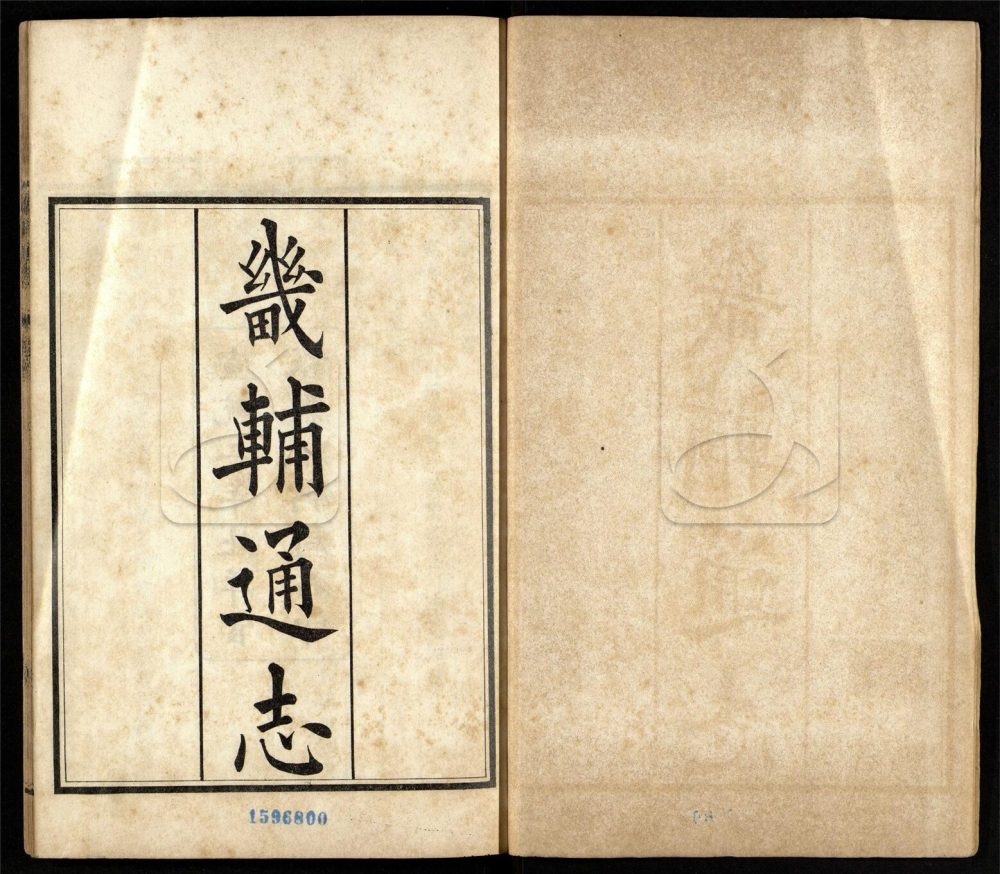 畿輔通志
1596800